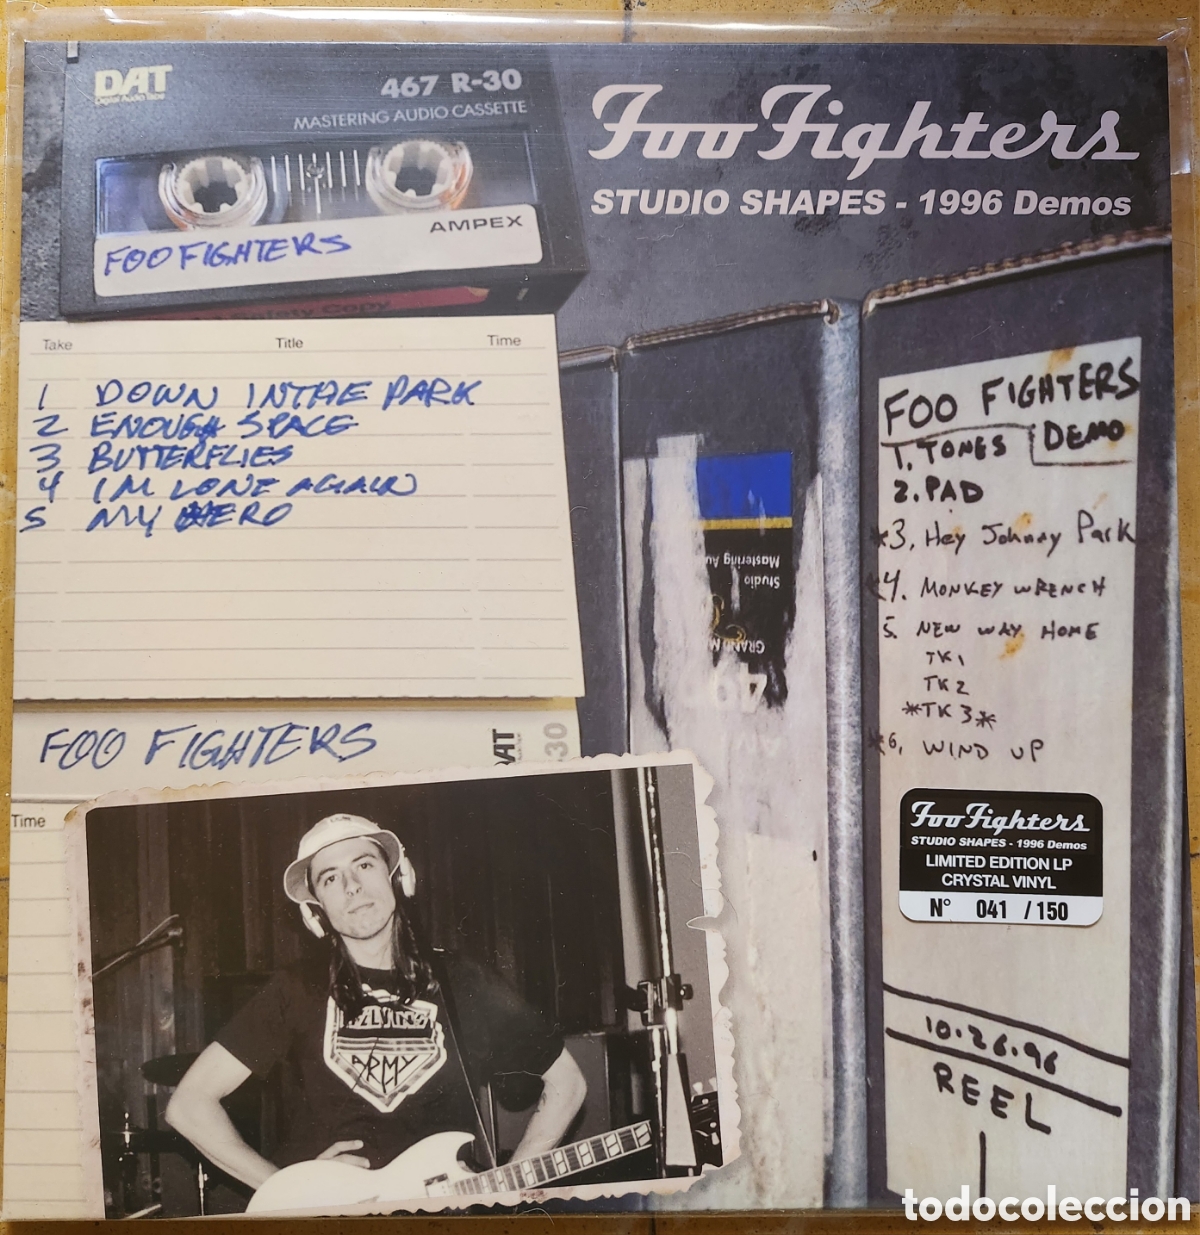 DAT
Digital Audio Tape
467 R-30
MASTERING AUDIO CASSETTE
AMPEX
FOO FIGHTERS
Safety Copy
Foo Fighters
STUDIO SHAPES - 1996 Demos
Take Title Time
1 DOWN IN THE PARK
2 ENOUGH SPACE
3 BUTTERFLIES
4 IM LONE AGAIN
5 MY HERO
FOO FIGHTERS
DAT
30
Time
Studio
Mastering Au
GRAND M
FOO FIGHTERS
DEMO
1. TONES
2. PAD
*3. Hey Johnny Park
*4. MONKEY WRENCH
5. NEW WAY HOME
TK 1
TK 2
*TK 3*
*6. WIND UP
Foo Fighters
STUDIO SHAPES - 1996 Demos
LIMITED EDITION LP
CRYSTAL VINYL
N° 041 / 150
10.26.96
REEL
1
ARMY
todocoleccion